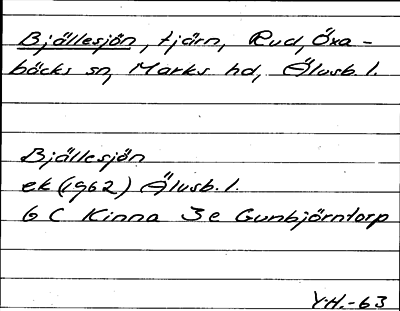 Bjällesjön, tjärn, Rud, Öxa-
bäcks sn, Marks hd, Älvsb. l.
Bjällesjön
ek (1962) Älvsb. l.
6 C Kinna 3e Gunbjörntorp
Y.H.-63